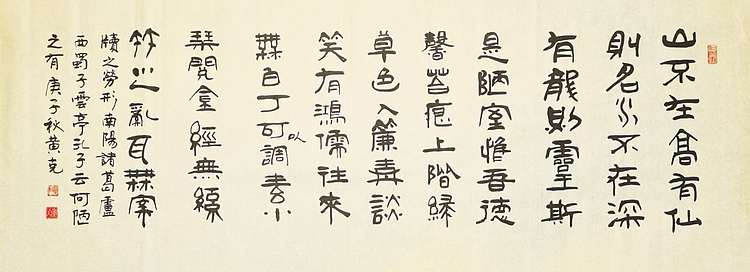 山不在高有仙
則名水不在深
有龍則靈斯
是陋室惟吾德
馨苔痕上階緑
草色入簾青談
笑有鴻儒往來
無白丁可以調素
琴閱金經無絲
竹之亂耳無案
牘之勞形南陽諸葛廬
西蜀子雲亭孔子云何陋
之有庚子秋黄克